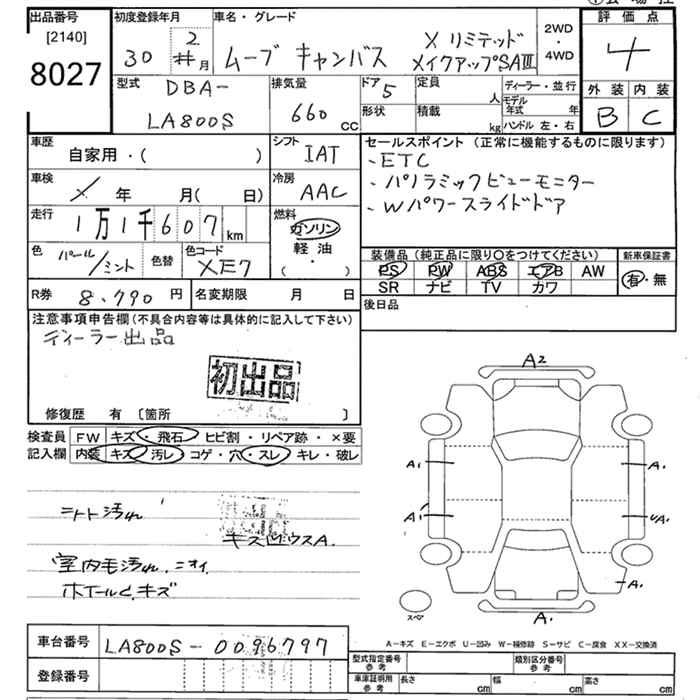 出品番号
[2140]
8027
初度登録年月
30 2 月
車名・グレード
ムーブ キャンバス
X リミテッド
メイクアップSAⅢ
2WD
・
4WD
評 価 点
4
外 装 内 装
B C
型式
DBA-
LA800S
排気量
660 cc
ドア 5
形状
定員 人
積載 kg
ディーラー・並行
モデル年式 年
ハンドル 左・右
車歴
自家用・( )
シフト
IAT
車検
X 年 月( 日)
冷房
AAC
走行
1万1千607 km
燃料
ガソリン
軽・油
・
( )
色
パール/ミント
色替
色コード
XE7
R券 8,790 円
名変期限 月 日
セールスポイント(正常に機能するものに限ります)
、ETC
、パノラミックビューモニター
、Wパワースライドドア
装備品(純正品に限り○をつけてください)
PS PW ABS エアB AW
SR ナビ TV カワ
新車保証書
有・無
後日品
注意事項申告欄(不具合内容等は具体的に記入して下さい)
ディーラー出品
初出品
修復歴 有 〔箇所 〕
検査員記入欄
FW キズ・飛石・ヒビ割・リペア跡・×要
内装 キズ・汚レ・コゲ・穴・スレ・キレ・破レ
シート汚れ
室内毛汚れ、ニオイ
ホイール キズ
A2
A1 A1
A1 UA1
A1
A1
スペア
A-キズ E-エクボ U-凹み W-補修跡 S-サビ C-腐食 XX-交換済
車台番号 LA800S-0096797
登録番号
型式指定番号 参考
類別区分番号 参考
車庫証明用 参考
長さ cm 幅 cm 高さ cm